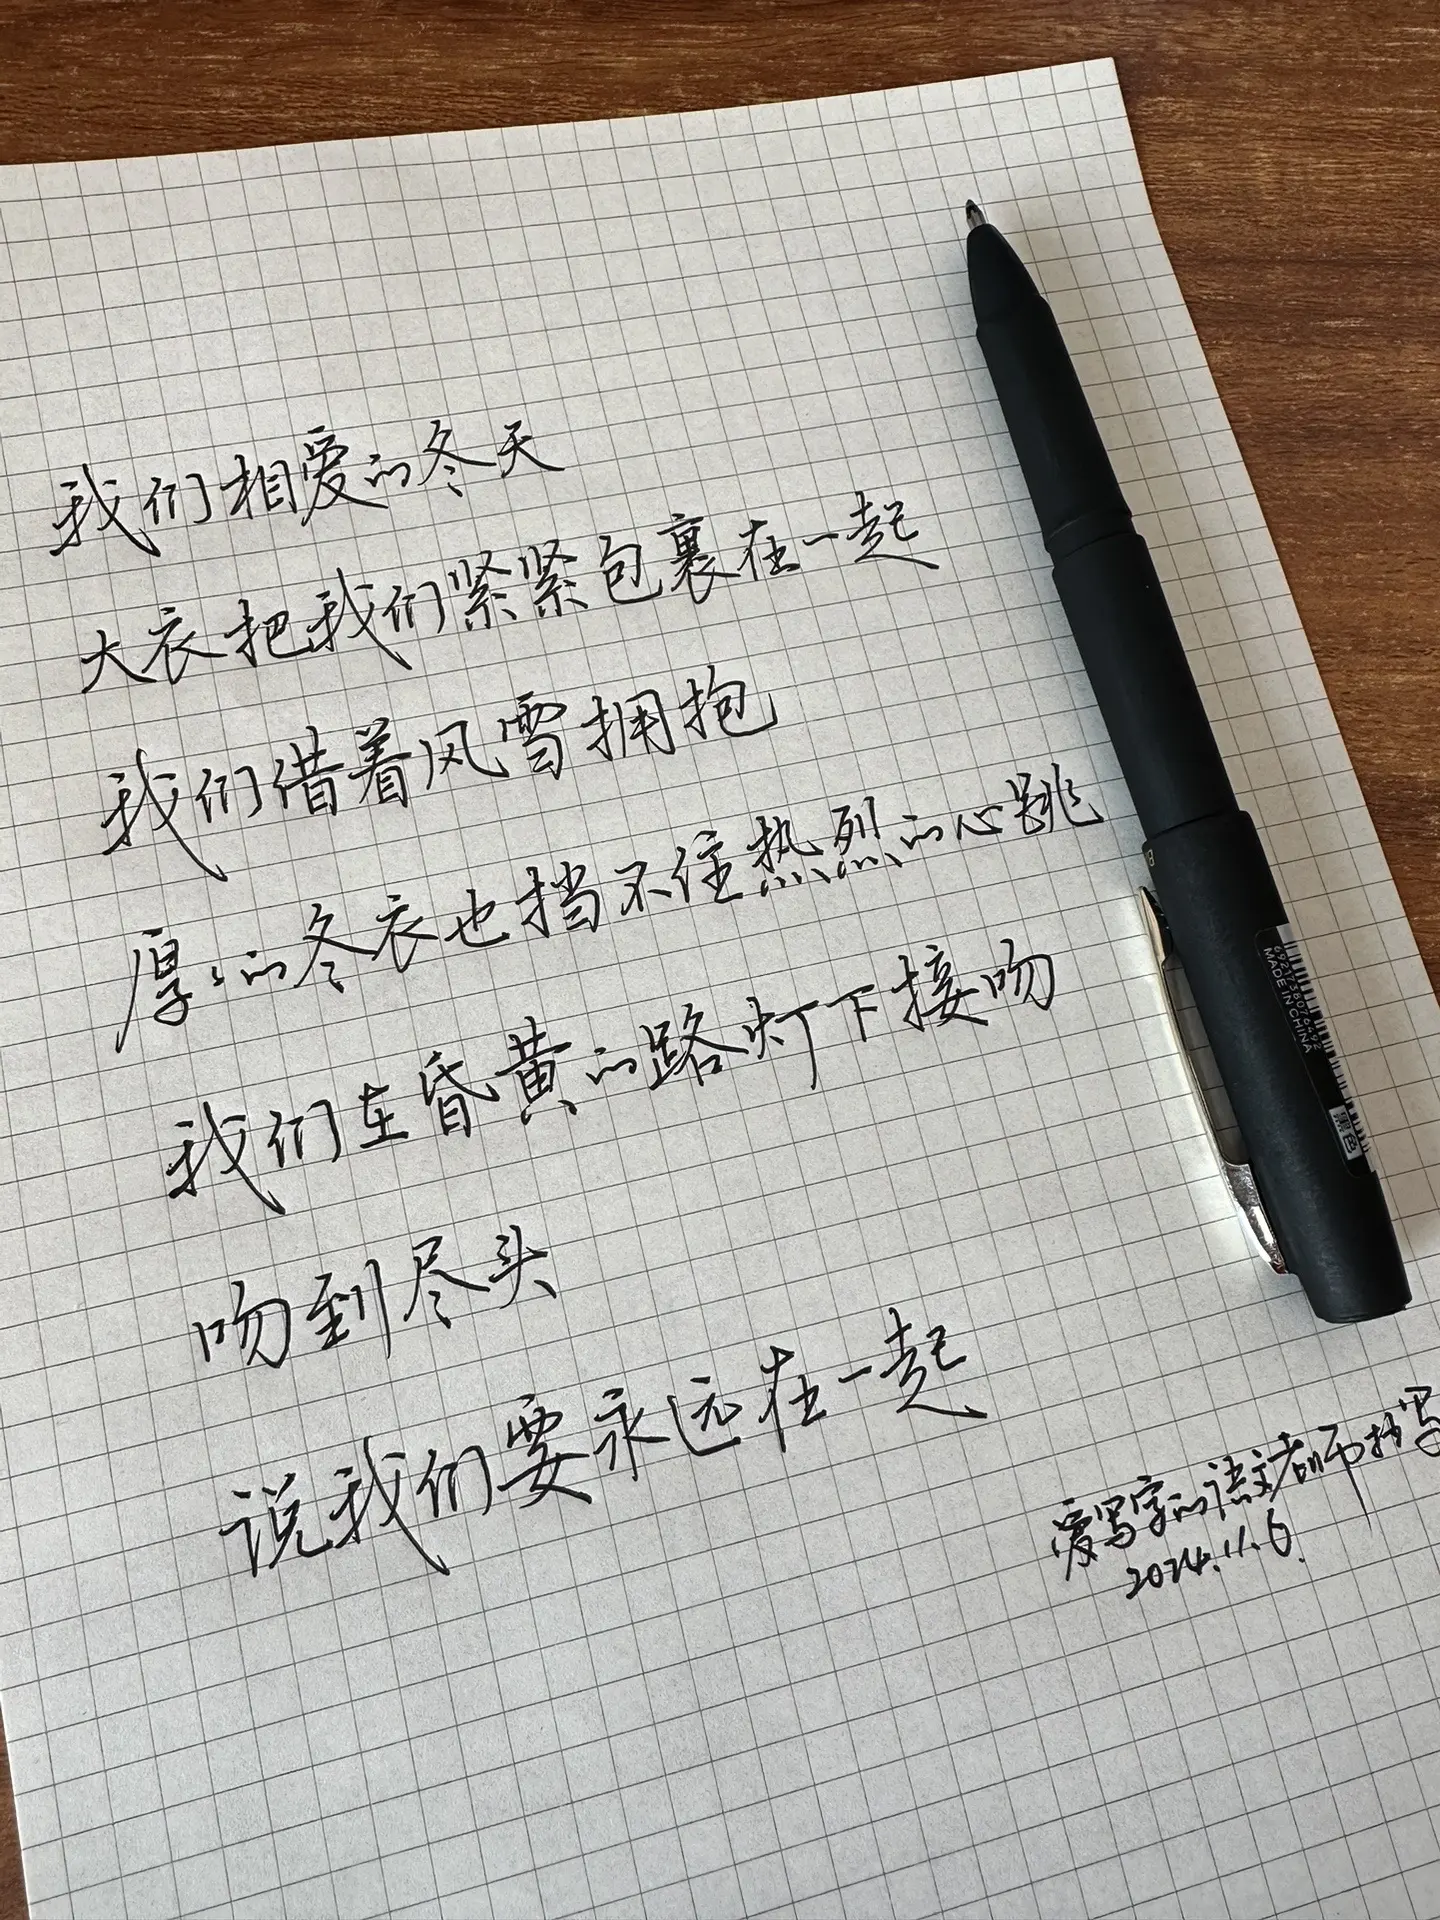 我们相爱的冬天
大衣把我们紧紧包裹在一起
我们借着风雪拥抱
厚々的冬衣也挡不住热烈的心跳
我们在昏黄的路灯下接吻
吻到尽头
说我们要永远在一起
爱写字的语文老师抄写
2024.11.6.
MADE IN CHINA
黑色